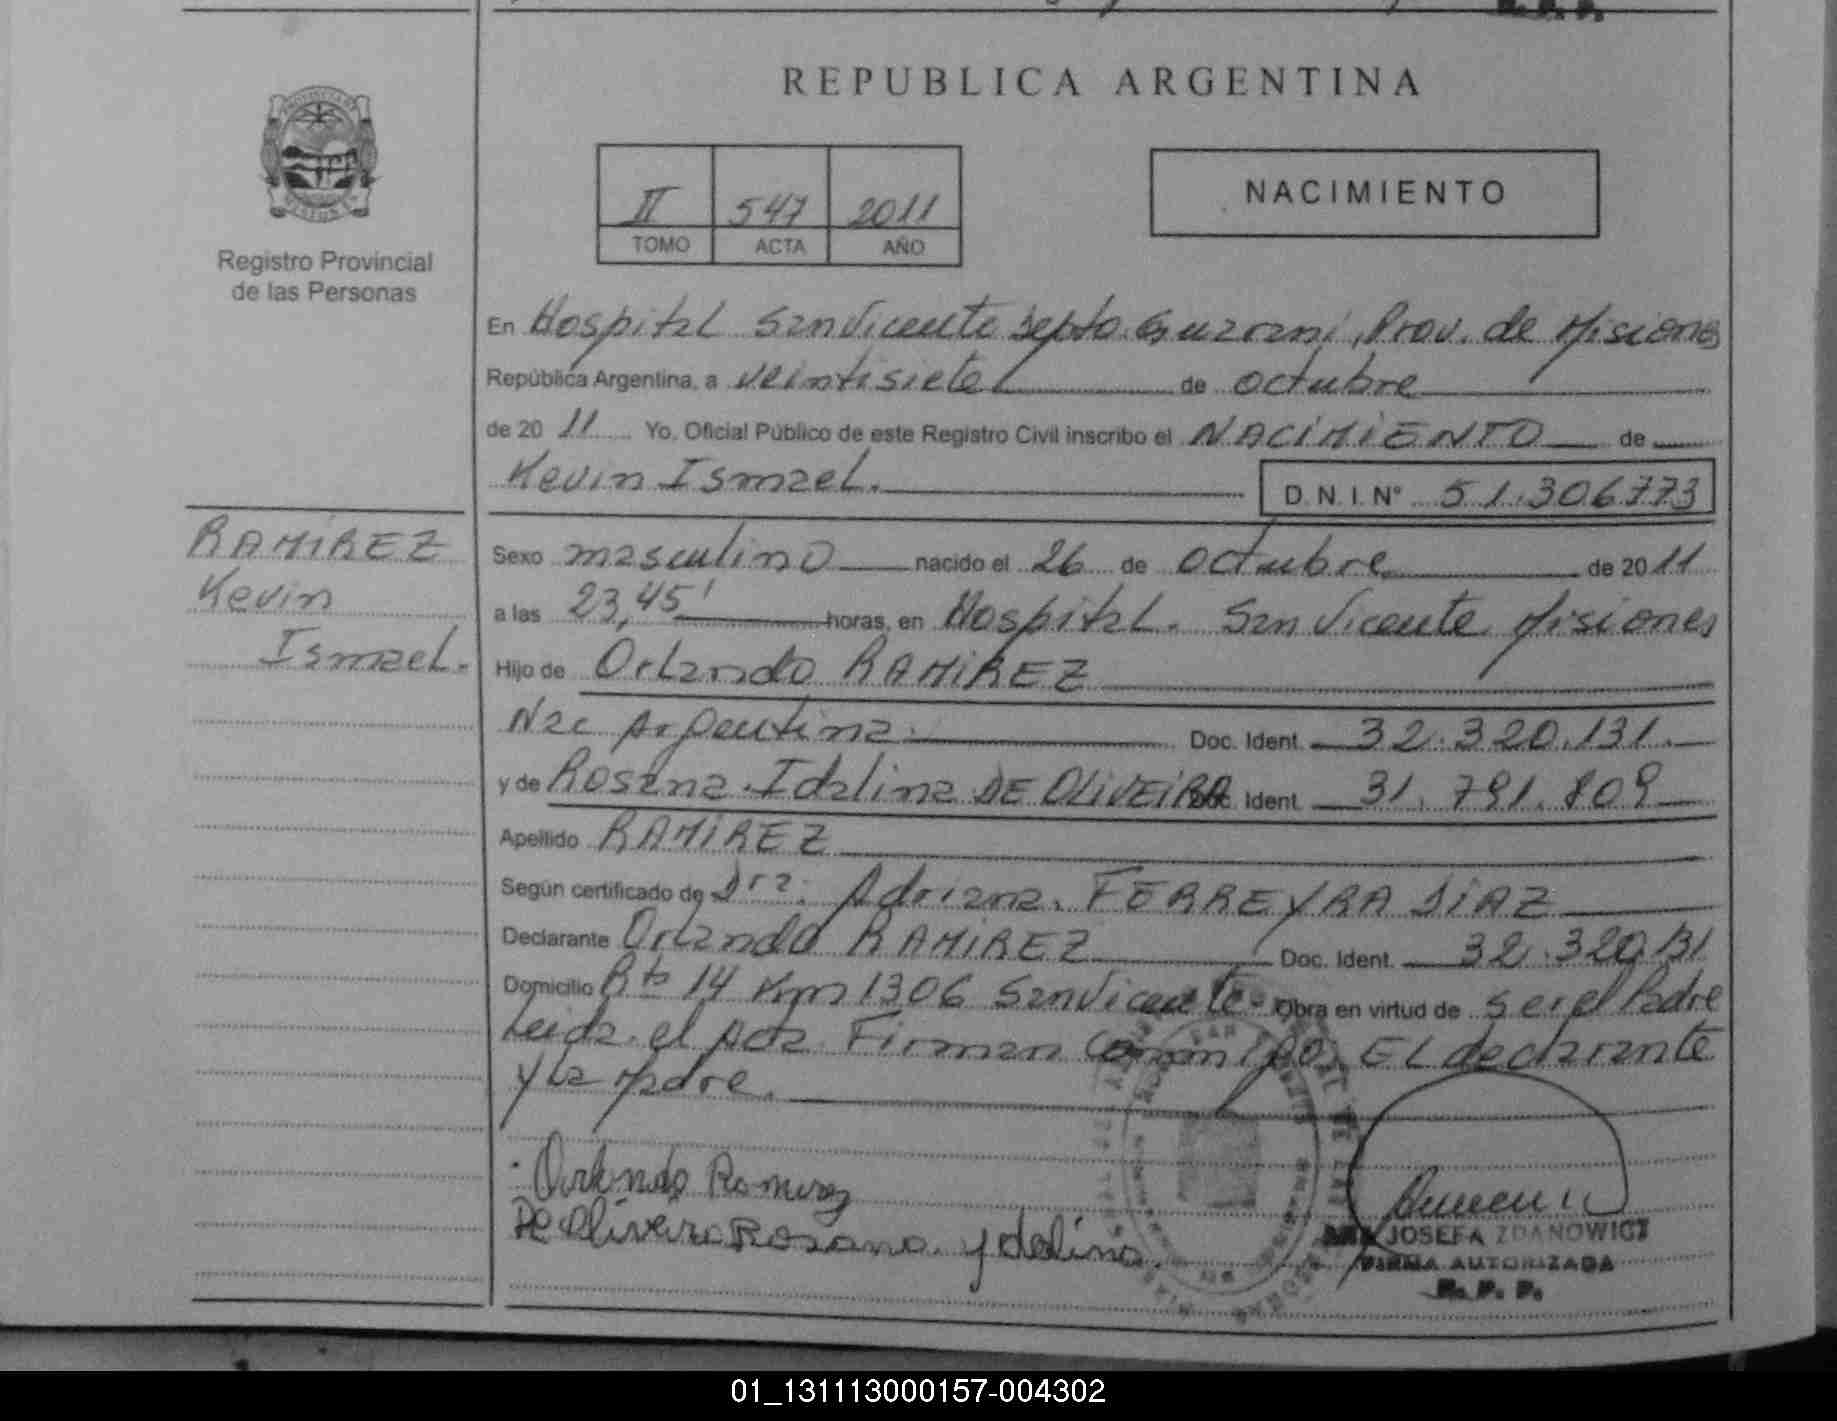 REPUBLICA ARGENTINA
II 547 2011
TOMO ACTA AÑO
NACIMIENTO
Registro Provincial
de las Personas
En Hospital San Vicente Depto. Guarani, Prov. de Misiones
República Argentina, a veintisiete de octubre
de 2011 Yo, Oficial Público de este Registro Civil inscribo el NACIMIENTO de
Kevin Ismael. D.N.I. N° 51.306.773
RAMIREZ
Kevin
Ismael.
Sexo masculino nacido el 26 de octubre de 2011
a las 23,45' horas, en Hospital. San Vicente Misiones
Hijo de Orlando RAMIREZ
Nac Argentina. Doc. Ident. 32.320.131.
y de Rosana Idalina DE OLIVEIRA Doc. Ident. 31.791.809
Apellido RAMIREZ
Según certificado de Dra. Adriana. FERREYRA DIAZ
Declarante Orlando RAMIREZ Doc. Ident. 32.320.131
Domicilio Rta 14 Km 1306 San Vicente Obra en virtud de ser el Padre
Leida el Acta Firman Conmigo, El declarante
y la Madre.
Orlando Ramirez
De Olivera Rosana Ydalina
JOSEFA ZDANOWICZ
FIRMA AUTORIZADA
R. P. P.
01_131113000157-004302